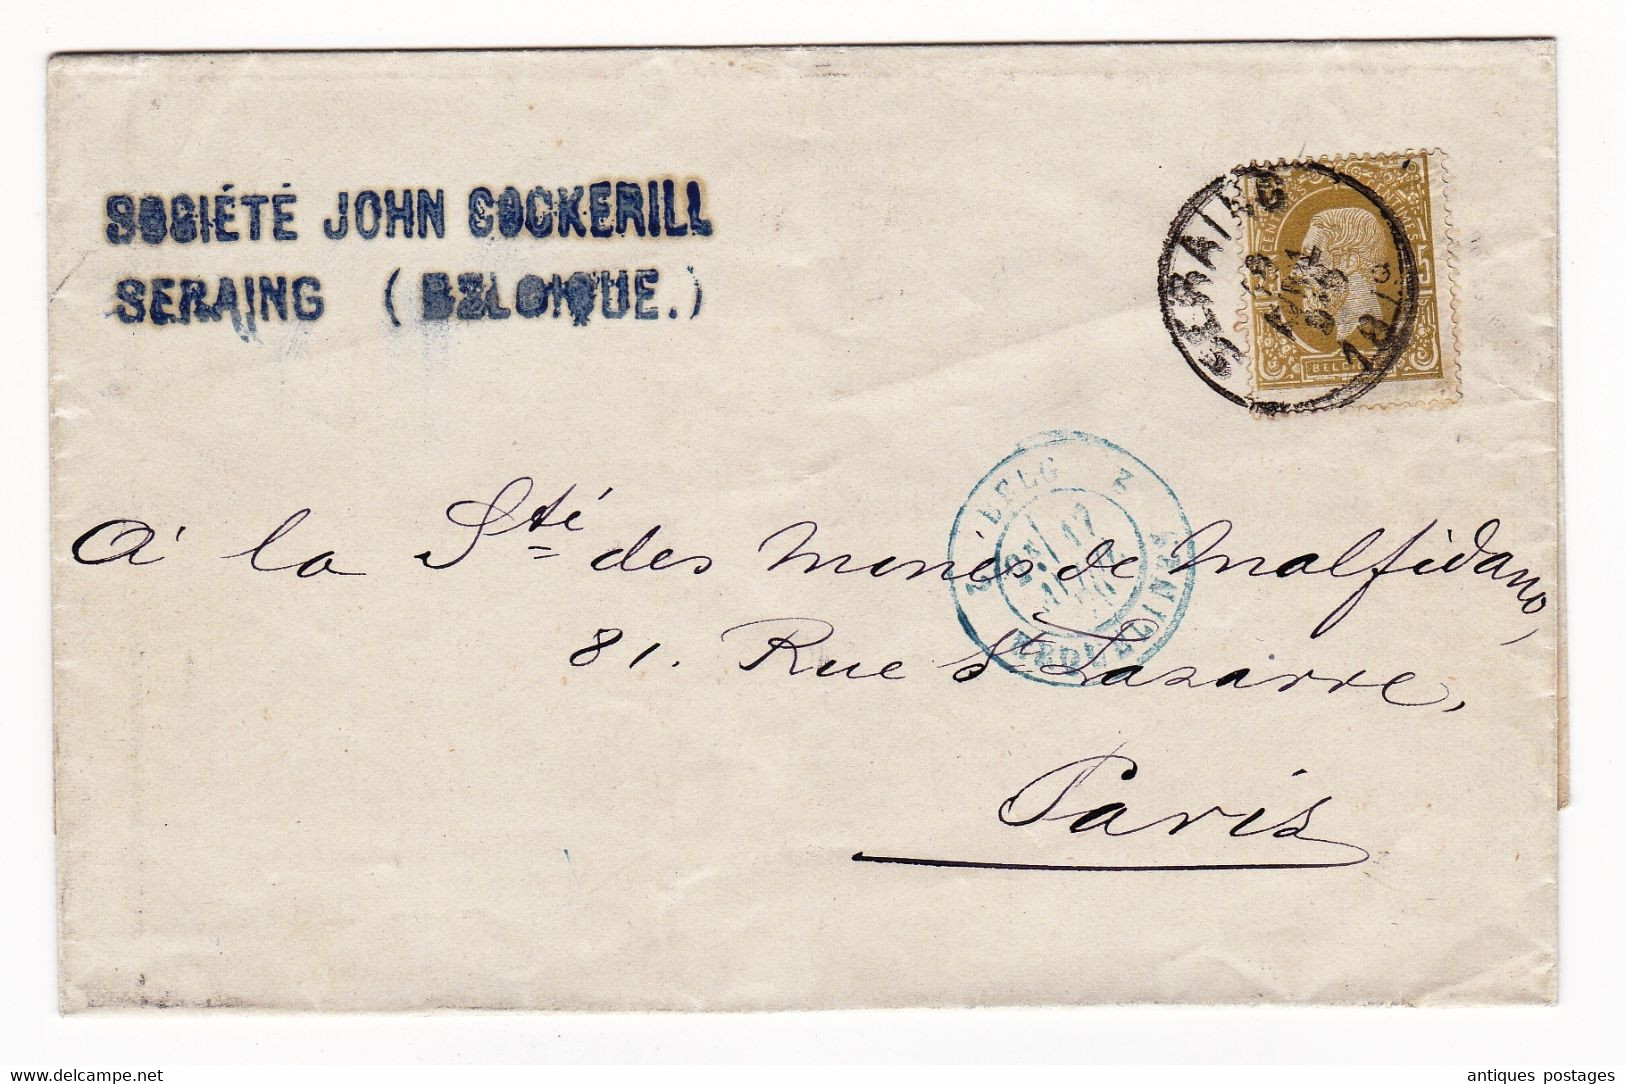 SOCIÉTÉ JOHN COCKERILL
SERAING (BELGIQUE.)
SERAING
1879
25 CENTIMES
BELGIQUE
BELG
ERQUELINES
17
À la Sté des Mines de Malfidano,
81. Rue St Lazarre,
Paris
www.delcampe.net
antiques postages